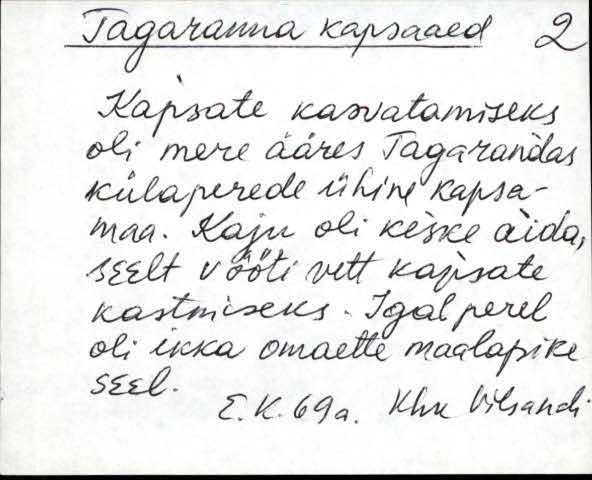 Tagaranna kapsaaed 2
Kapsate kasvatamiseks
oli mere ääres Tagarandas
külaperede ühine kapsa-
maa. Kaju oli keske aida,
seelt vööti vett kapsate
kastmiseks. Igal perel
oli ikka omaette maalapike
seel.
E.K. 69a. Khk Vilsandi